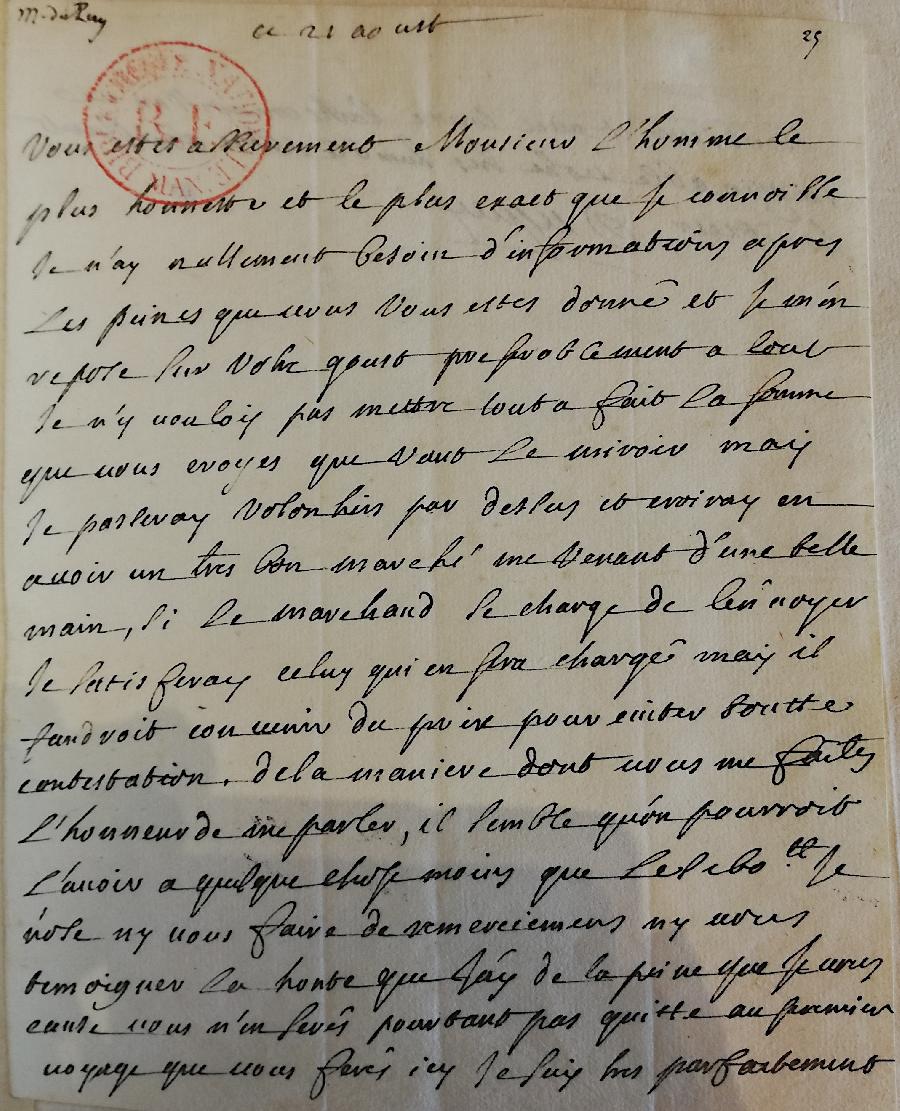 ce 21 aoust
25
BIBLIOTHEQUE NATIONALE MSS
R F
Vous estes assurement Monsieur L'homme le
plus honneste et le plus exact que je connoisse
Je n'ay nullement besoin d'informations apres
Les peines que vous vous estes donné et je m'en
repose sur vostre goust preferablement a tout
Je n'y voulois pas mettre tout a fait la somme
que vous croyes que vaut Le miroir mais
Je passeray volontiers par dessus et croiray en
avoir un tres bon marché me venant d'une belle
main, si Le marchand se charge de l'envoyer
Je satisferay celuy qui en sera chargé mais il
faudroit convenir du prix pour eviter toutte
contestation. de la maniere dont vous me faites
L'honneur de me parler, il semble qu'on pourroit
L'avoir a quelque chose moins que Les
Je
n'ose ny vous faire de remerciemens ny vous
temoigner La honte que J'ay de la peine que je vous
cause vous n'en serés pourtant pas quitte au premier
voyage que vous ferés icy Je suis tres parfaitement